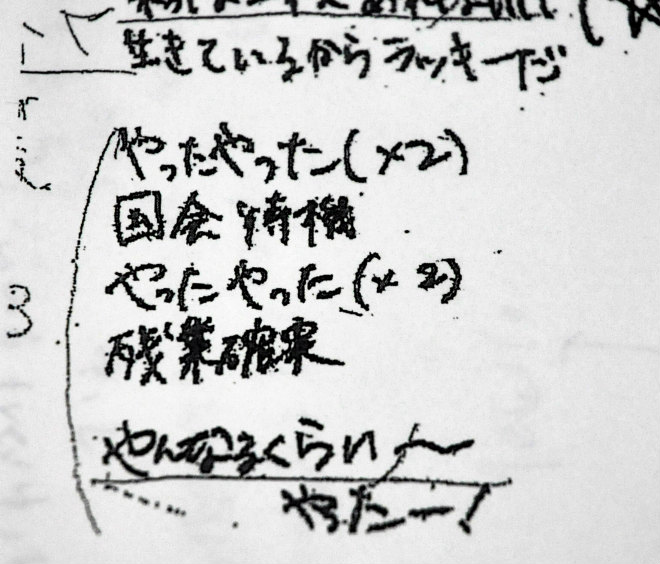 生きているからラッキーだ
やったやった(×2)
国会待機
やったやった(×2)
残業確実
やんなるくらい〜
やったー!
3